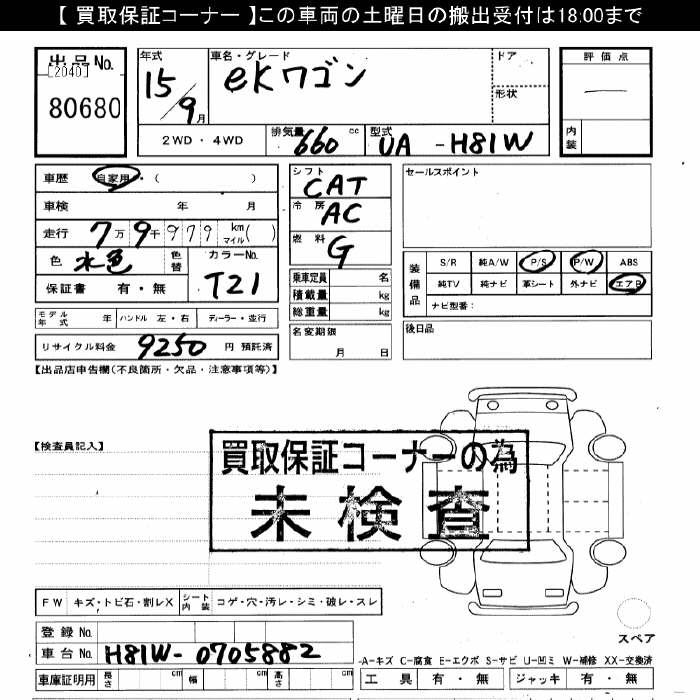 【 買取保証コーナー 】この車両の土曜日の搬出受付は18:00まで
出品No.
[2040]
80680
年式
15/9月
車名・グレード
eKワゴン
ドア
形状
評価点
―
内装
2WD・4WD
排気量 660 cc
型式 UA - H81W
車歴 自家用・( )
車検 年 月
走行 7万9千979 km マイル( )
色 水色 色替
カラーNo. T21
保証書 有・無
シフト CAT
冷房 AC
燃料 G
乗車定員 名
積載量 kg
総重量 kg
セールスポイント
装備品
S/R 純A/W P/S P/W ABS
純TV 純ナビ 革シート 外ナビ エアB
ナビ型番:
モデル年式 年 ハンドル 左・右 ディーラー・並行
名変期限 月 日
後日品
リサイクル料金 9250 円 預託済
【出品店申告欄(不良箇所・欠品・注意事項等)】
【検査員記入】
買取保証コーナーの為
未検査
FW キズ・トビ石・割レX シート内装 コゲ・穴・汚レ・シミ・破レ・スレ
スペア
登録No.
車台No. H81W-0705882
車庫証明用 長さ cm 幅 cm 高さ cm
-A-キズ C-腐食 E-エクボ S-サビ U-凹ミ W-補修 XX-交換済
工具 有・無 ジャッキ 有・無